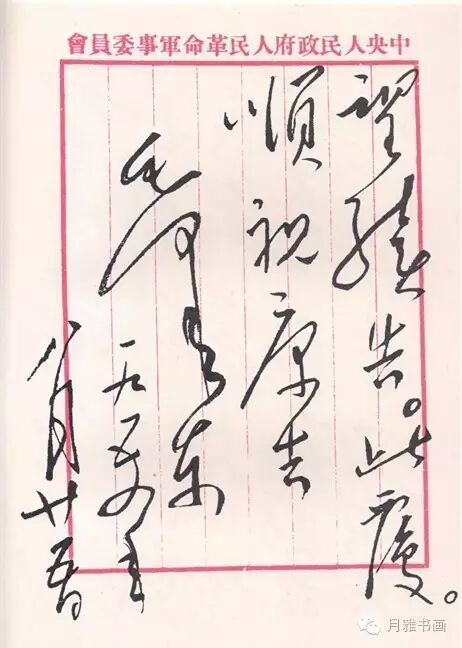 中央人民政府人民革命軍事委員會
望續告。此覆。
順祝康吉
毛泽东
一九五
年
八月廿五日
月雅书画